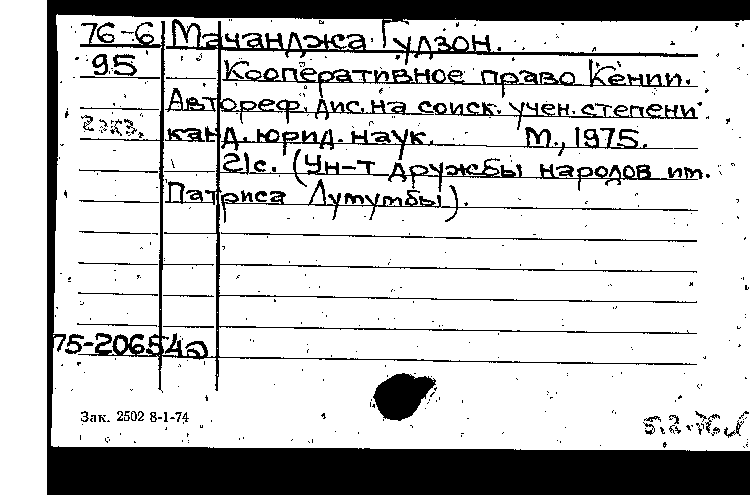 76-6 Мачанджа Гудзон.
95 Кооперативное право Кении.
Автореф. дис. на соиск. учен. степени
2 экз. канд. юрид. наук. М., 1975.
21с. (Ун-т дружбы народов им.
Патриса Лумумбы).
75-20654а
Зак. 2502 8-1-74
5.2.76